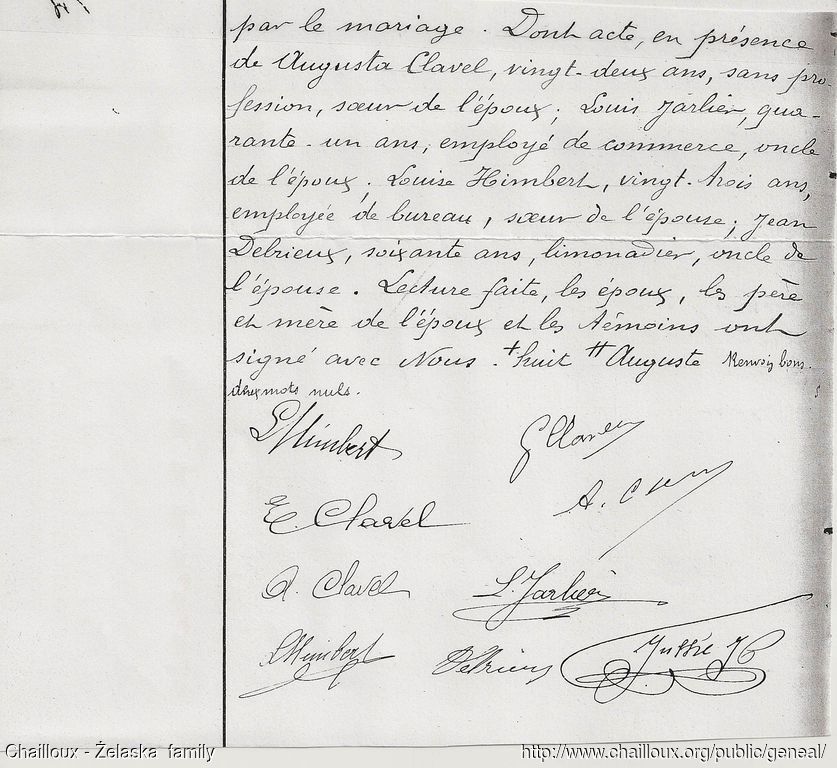 par le mariage. Dont acte, en présence
de Augusta Clavel, vingt-deux ans, sans pro-
fession, sœur de l'époux; Louis Jarlier, qua-
rante-un ans, employé de commerce, oncle
de l'époux; Louise Himbert, vingt-trois ans,
employée de bureau, sœur de l'épouse; Jean
Debrieux, soixante ans, limonadier, oncle de
l'épouse. Lecture faite, les époux, les père
et mère de l'époux et les témoins ont
signé avec Nous. + huit ++ Auguste Renvois bons.
deux mots nuls.
L Himbert
G Clavel
E. Clavel
A. C
A. Clavel
L. Jarlier
L Himbert
Chailloux - Želaska family
http://www.chailloux.org/public/geneal/